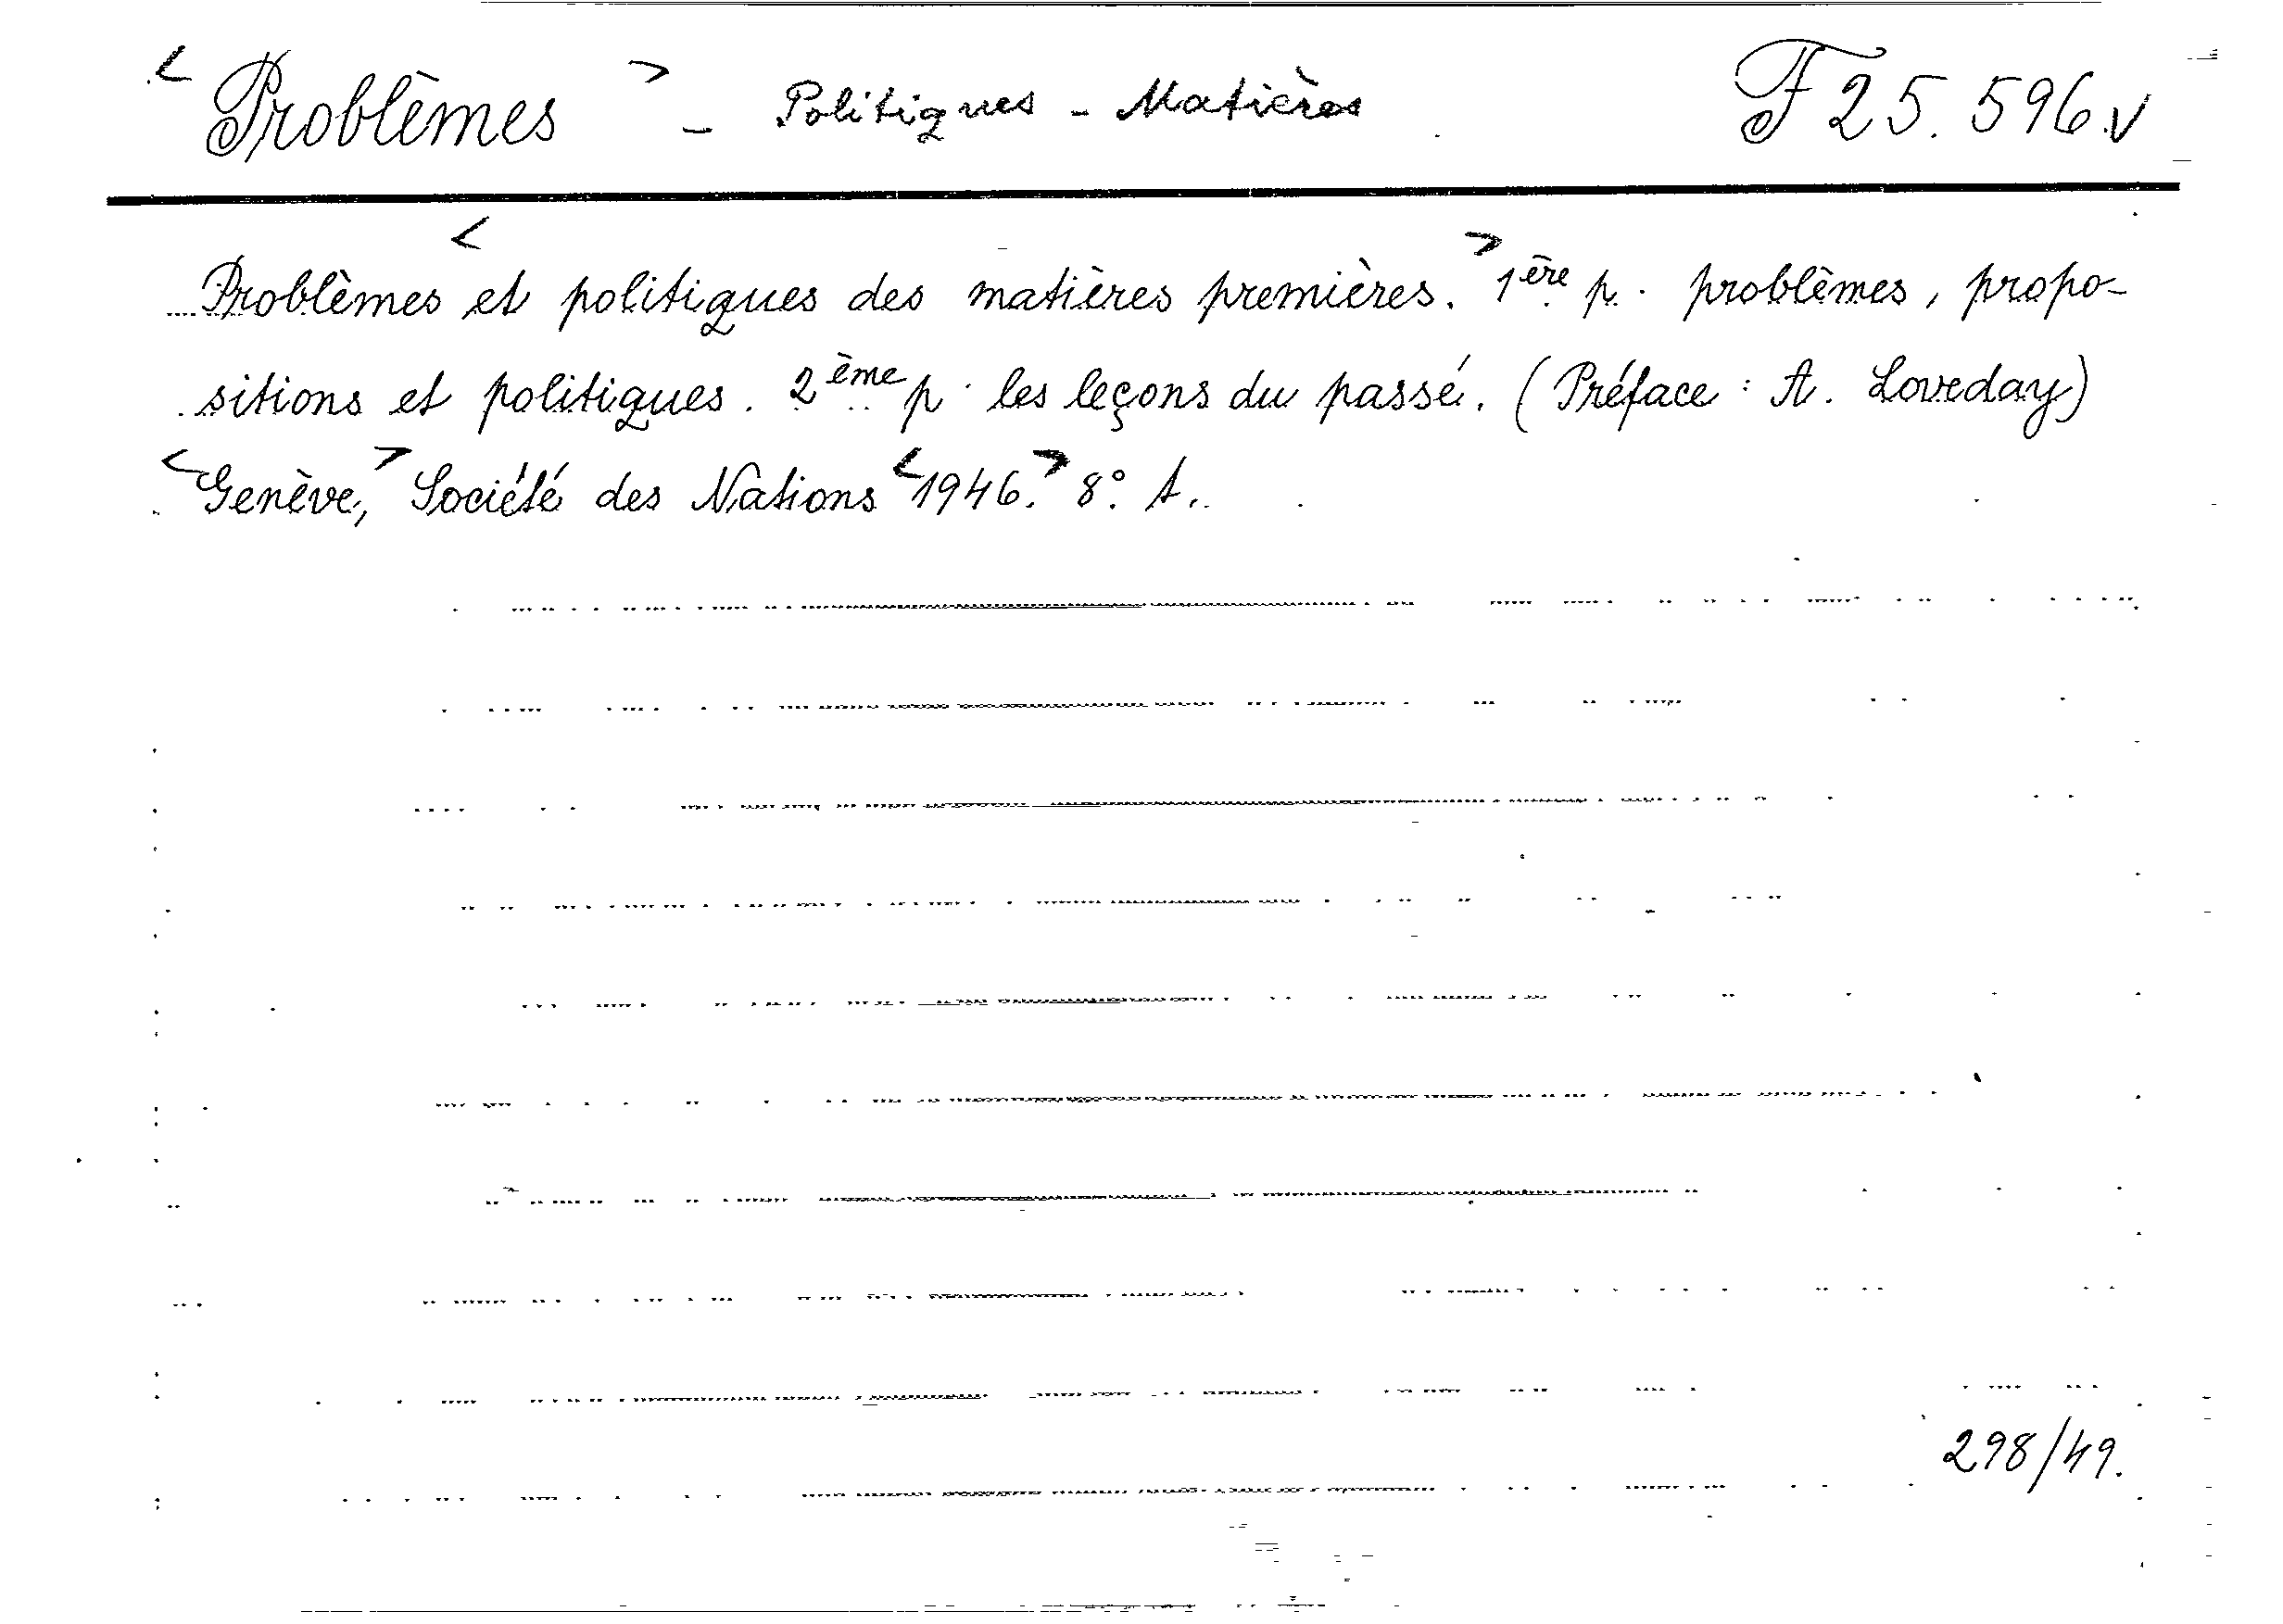 < Problèmes > - Politiques - Matières F 25.596.v
Problèmes < et politiques des matières premières. > 1ère p. problèmes, propo-
sitions et politiques. 2ème p. les leçons du passé. (Préface : A. Loveday)
< Genève, > Société des Nations < 1946. > 8°. A.
298/49.